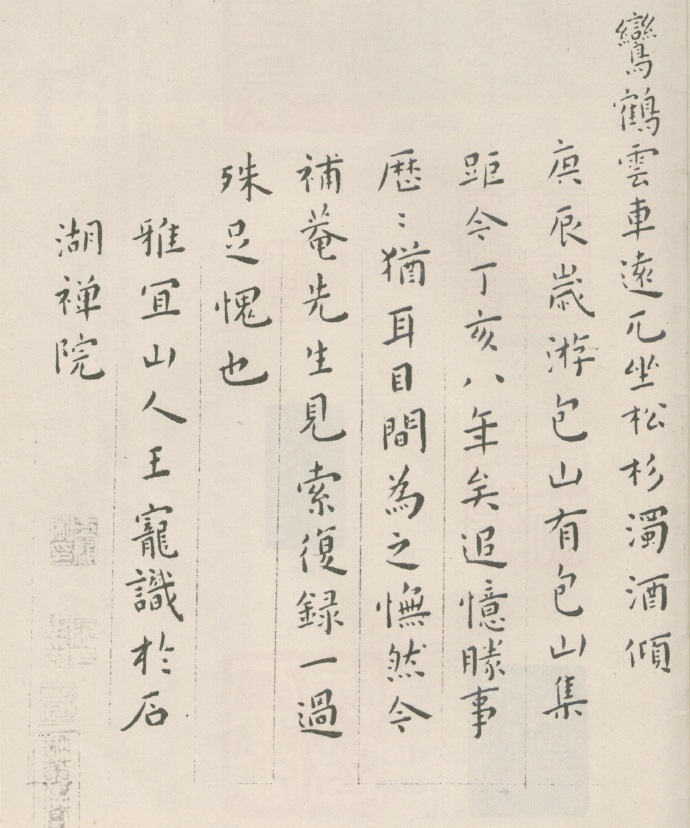 鸞鶴雲車遠兀坐松杉濁酒傾
庚辰嵗游包山有包山集
距今丁亥八年矣追憶勝事
歷〻猶耳目間為之憮然今
補菴先生見索復録一過
殊足愧也
雅宜山人王寵識於石
湖禅院